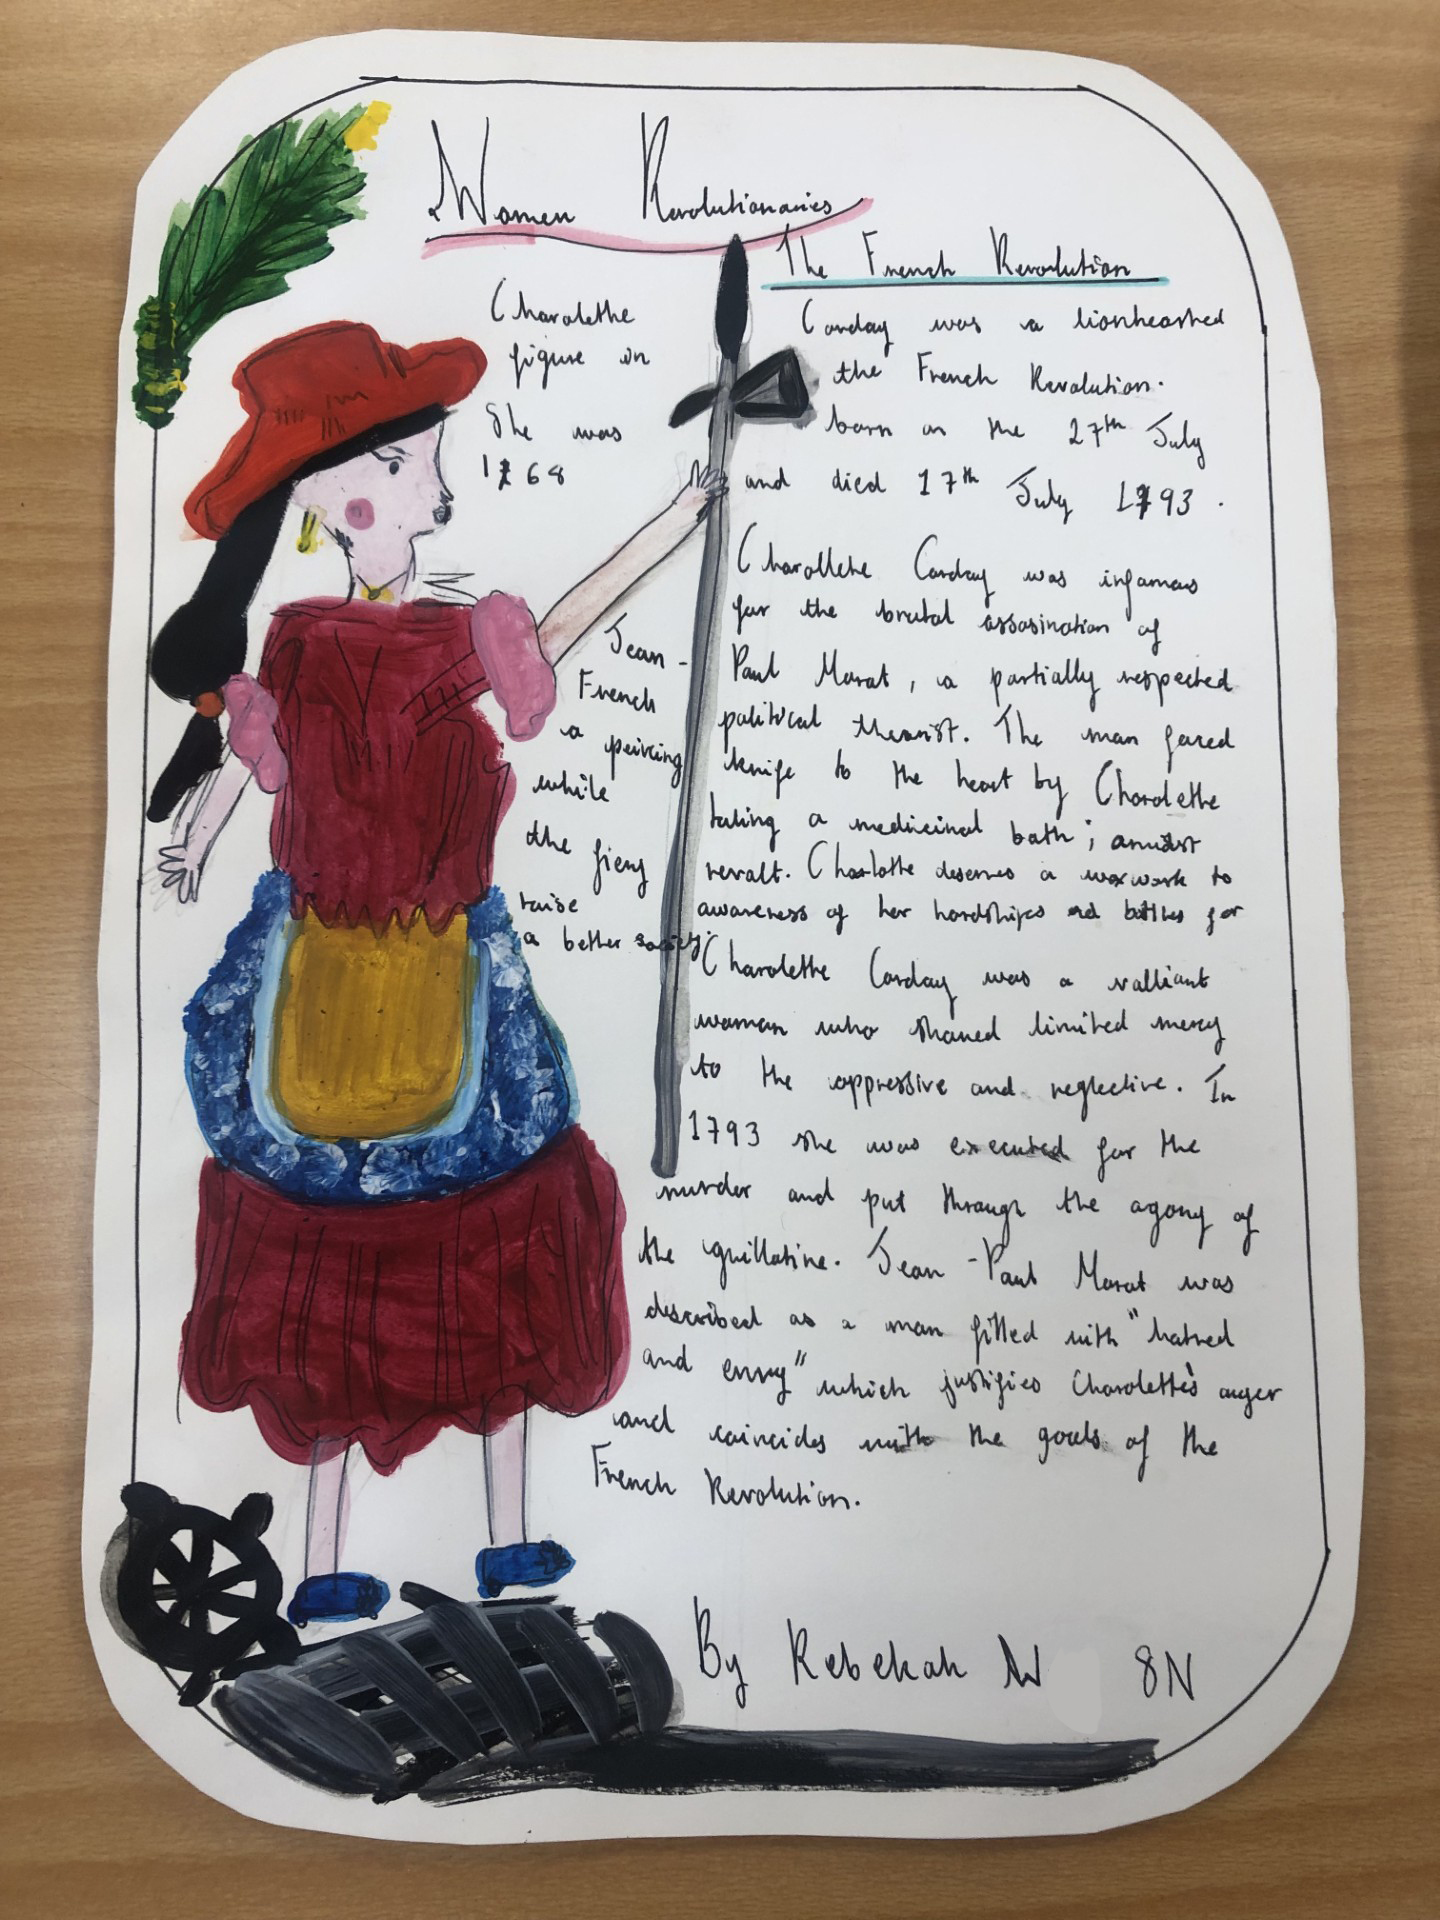 Women Revolutionaries
The French Revolution
Charolethe Corday was a lionhearted
figure in the French Revolution.
She was born on the 27th July
1768 and died 17th July 1793.
Charollehe Corday was infamous
for the brutal assasination of
Jean - Paul Marat, a partially respected
French political theorist. The man faced
a peircing knife to the heart by Charolethe
while taking a medicinal bath; amidst
the fiery revolt. Charlotte deserves a waxwork to
raise awareness of her hardships and battles for
a better society.
Charolethe Corday was a valliant
woman who showed limited mercy
to the oppressive and neglective. In
1793 she was executed for the
murder and put through the agony of
the guillotine. Jean - Paul Marat was
described as a man filled with "hatred
and envy" which justifies Charolette's anger
and coincides with the goals of the
French Revolution.
By Rebekah W 8N